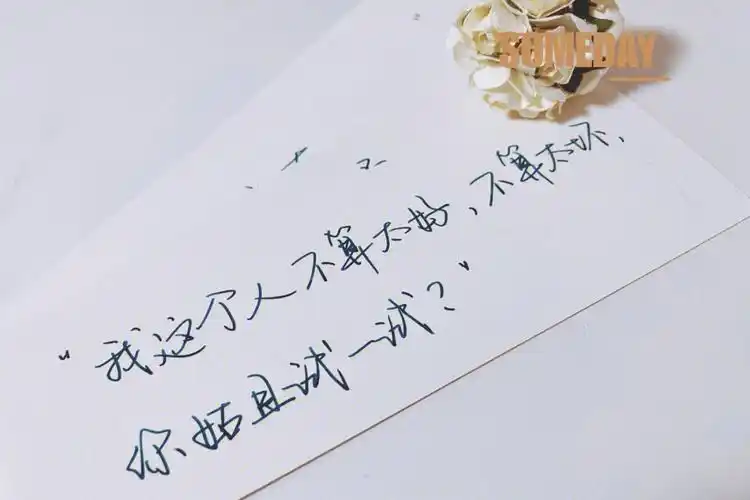 SOMEDAY
“我这个人不算太好、不算太坏、
你姑且试一试？”